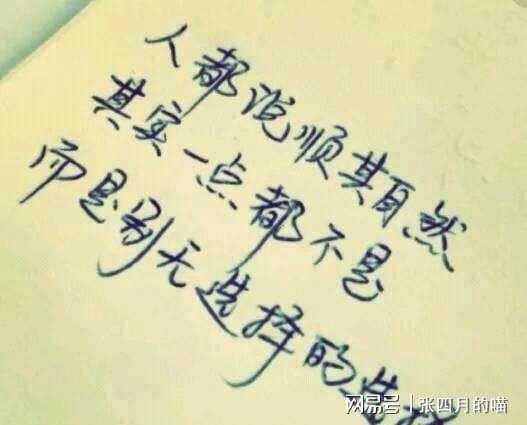 人都说顺其自然
其实一点都不是
而是别无选择的选择
网易号 | 张四月的喵